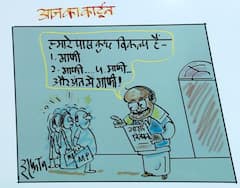 आज का कार्टून
हमारे पास कुछ विकल्प हैं-
1. माफी
2. माफी... 5 माफी...
और अंत में माफी!
MP
2024
इरफ़ान